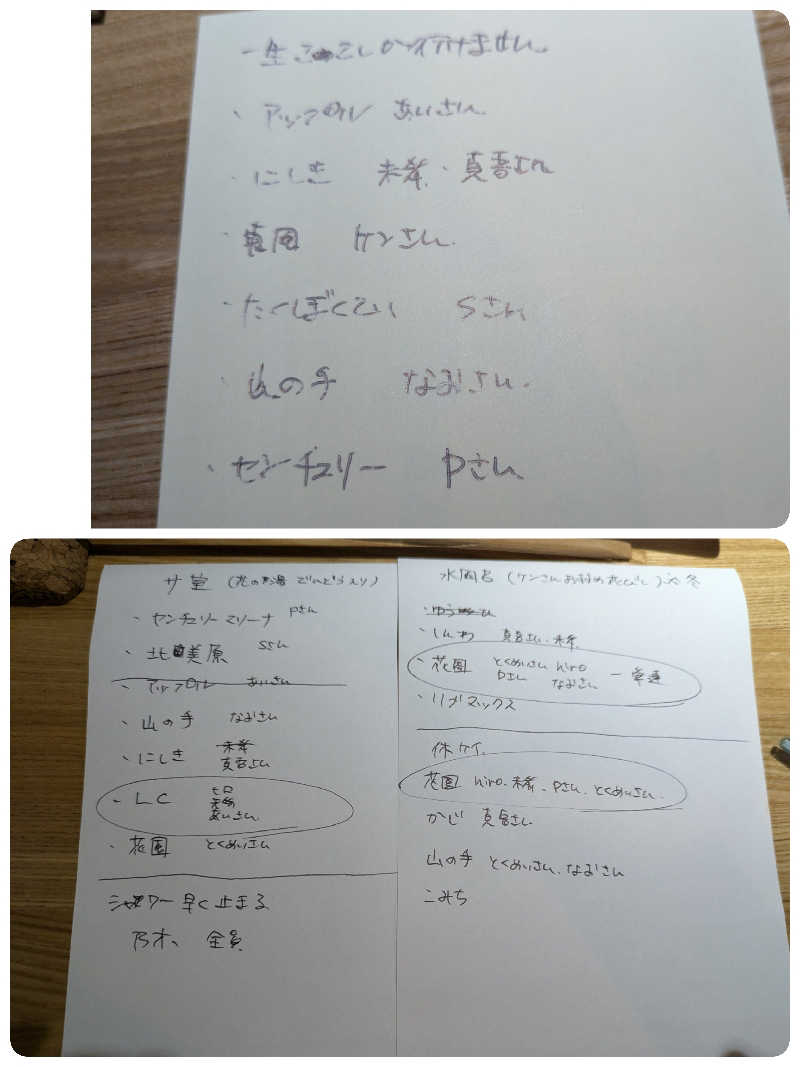 一生ここしか行けません
・アップル あいさん
・にしき 未希・真吾さん
・花園 ケンさん
・たくぼくてい Sさん
・山の手 なおさん
・センチュリー Pさん
サ室
・センチュリーマリーナ Pさん
・北美原 SSん
・アップル あいさん
・山の手 なおさん
・にしき 未希
真吾さん
・LC ヒロ
未希
あいさん
・花園 とくめいさん
シャワー早く止まる
乃木、全員
水風呂
・しんわ 真吾さん、未希
・花園 とくめいさん hiro
Pさん なおさん
・リブマックス
休ケイ
花園 hiro、未希、Pさん、とくめいさん
かじ 真吾さん
山の手 とくめいさん、なおさん
こみち